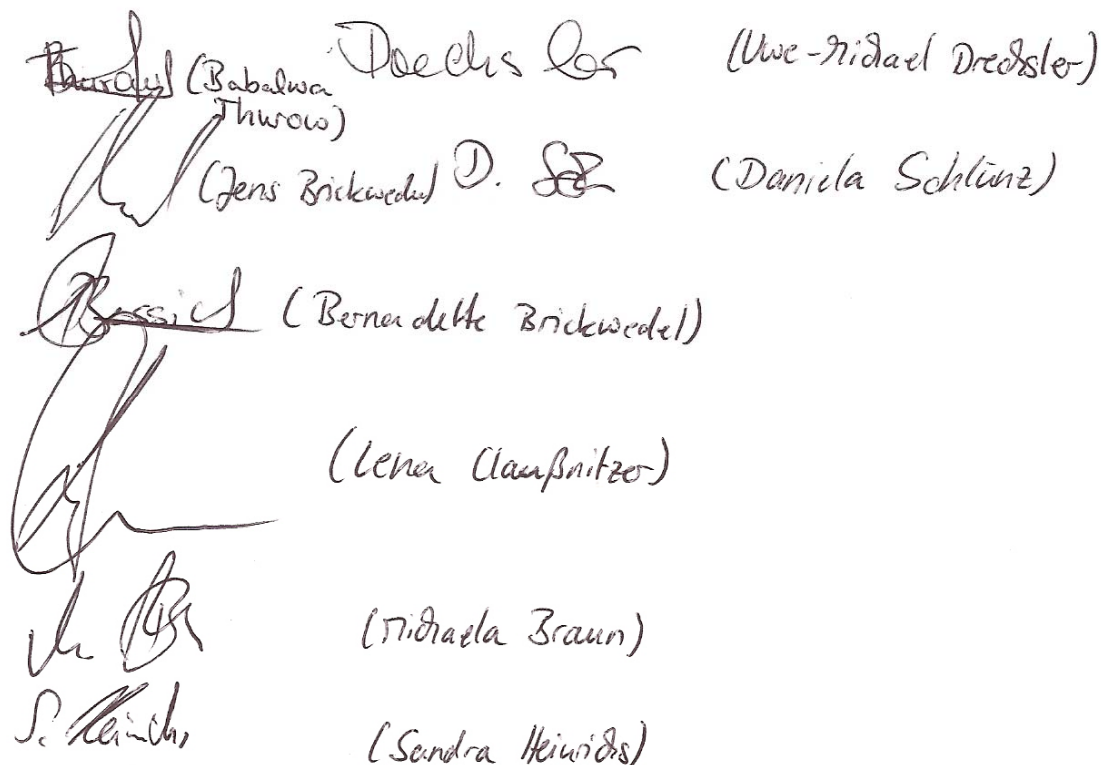 (Babalwa Thurow) Drechsler (Uwe-Michael Drechsler)
(Jens Brickwedel) D. (Daniela Schlünz)
(Bernadette Brickwedel)
(Lena Claußnitzer)
(Michaela Braun)
S. Heinrichs (Sandra Heinrichs)